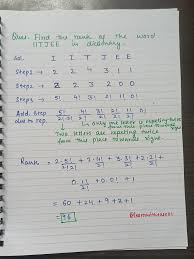 Ques. Find the rank of the word
IITJEE in dictionary.
Sol. I I T J E E
Step1 → 2 2 4 3 1 1
Step2 → 2 2 3 2 0 0
Step3 → 5! 4! 3! 2! 1! 0!
Add. Step 5!/2!2! 4!/2! 3!/2! 2!/2! 1!/2! 0!
due to rep. only one letter is repeating twice
from this place towards right
Two letters are repeating twice
from this place towards right
Rank = 2·5!/2!2! + 2·4!/2! + 3·3!/2! + 2·2!/2! +
0·1!/2! + 0·0! + 1
= 60 + 24 + 9 + 2 + 1
= 96